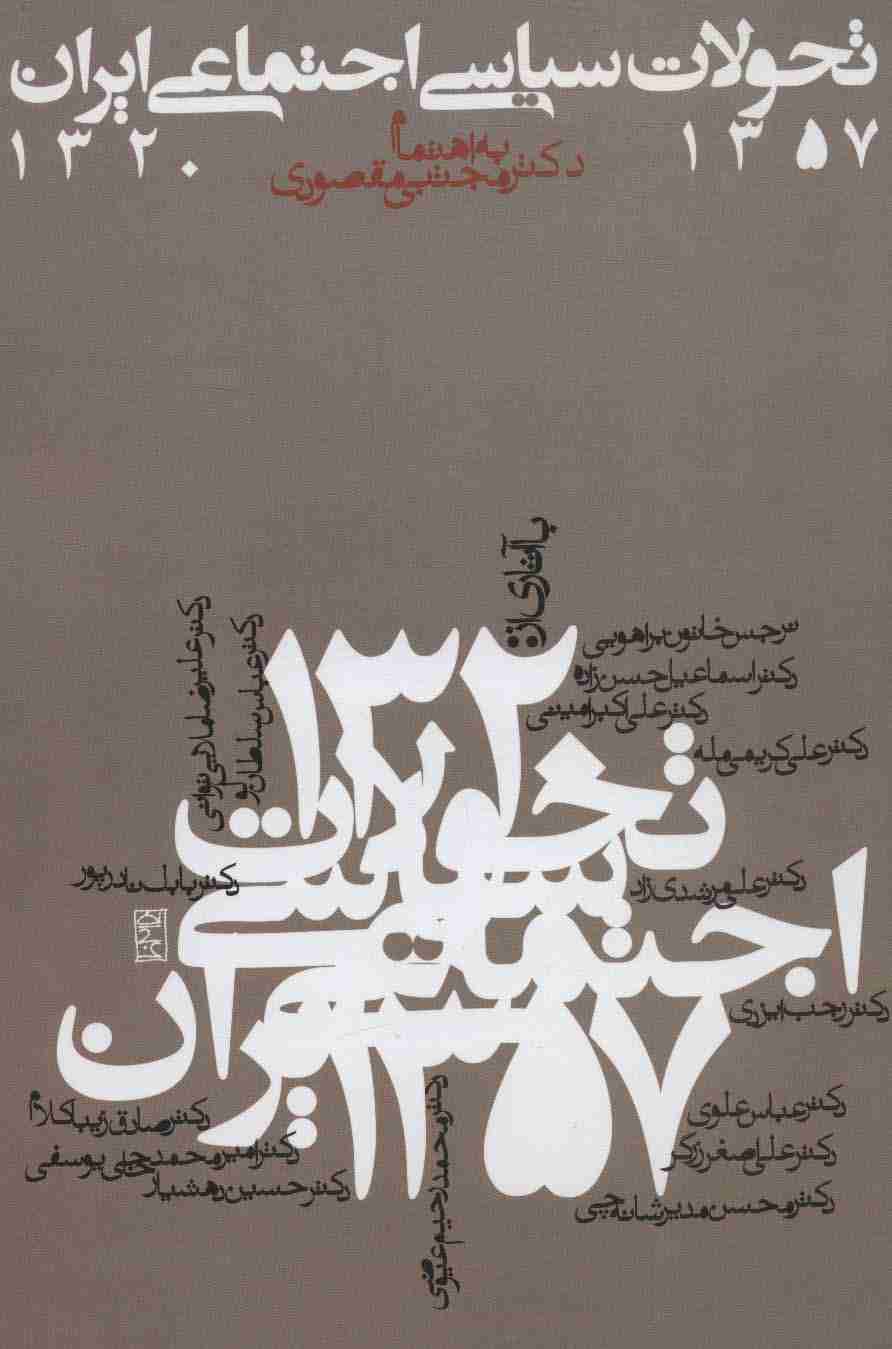 تحولات سیاسی اجتماعی ایران
۱۳۲۰ ۱۳۵۷
به اهتمام
دکتر مجتبی مقصودی
با آثاری از:
نرجس خاتون براهویی
دکتر اسماعیل حسن زاده
دکتر علی اکبر امینی
دکتر علی کریمی مله
دکتر علیرضا ملایی توانی
دکتر عباس سلطان
دکتر علی مرشدی زاد
دکتر بابک نادرپور
دکتر رجب ایزدی
دکتر عباس علوی
دکتر علی اصغر زرگر
دکتر محسن مدیرشانه چی
دکتر صادق زیباکلام
دکتر امیرمحمد حاجی یوسفی
دکتر حسین رهشیار
دکتر محمدرحیم عیوضی
۱۳۲۰
تحولات
سیاسی
اجتماعی
ایران
۱۳۵۷